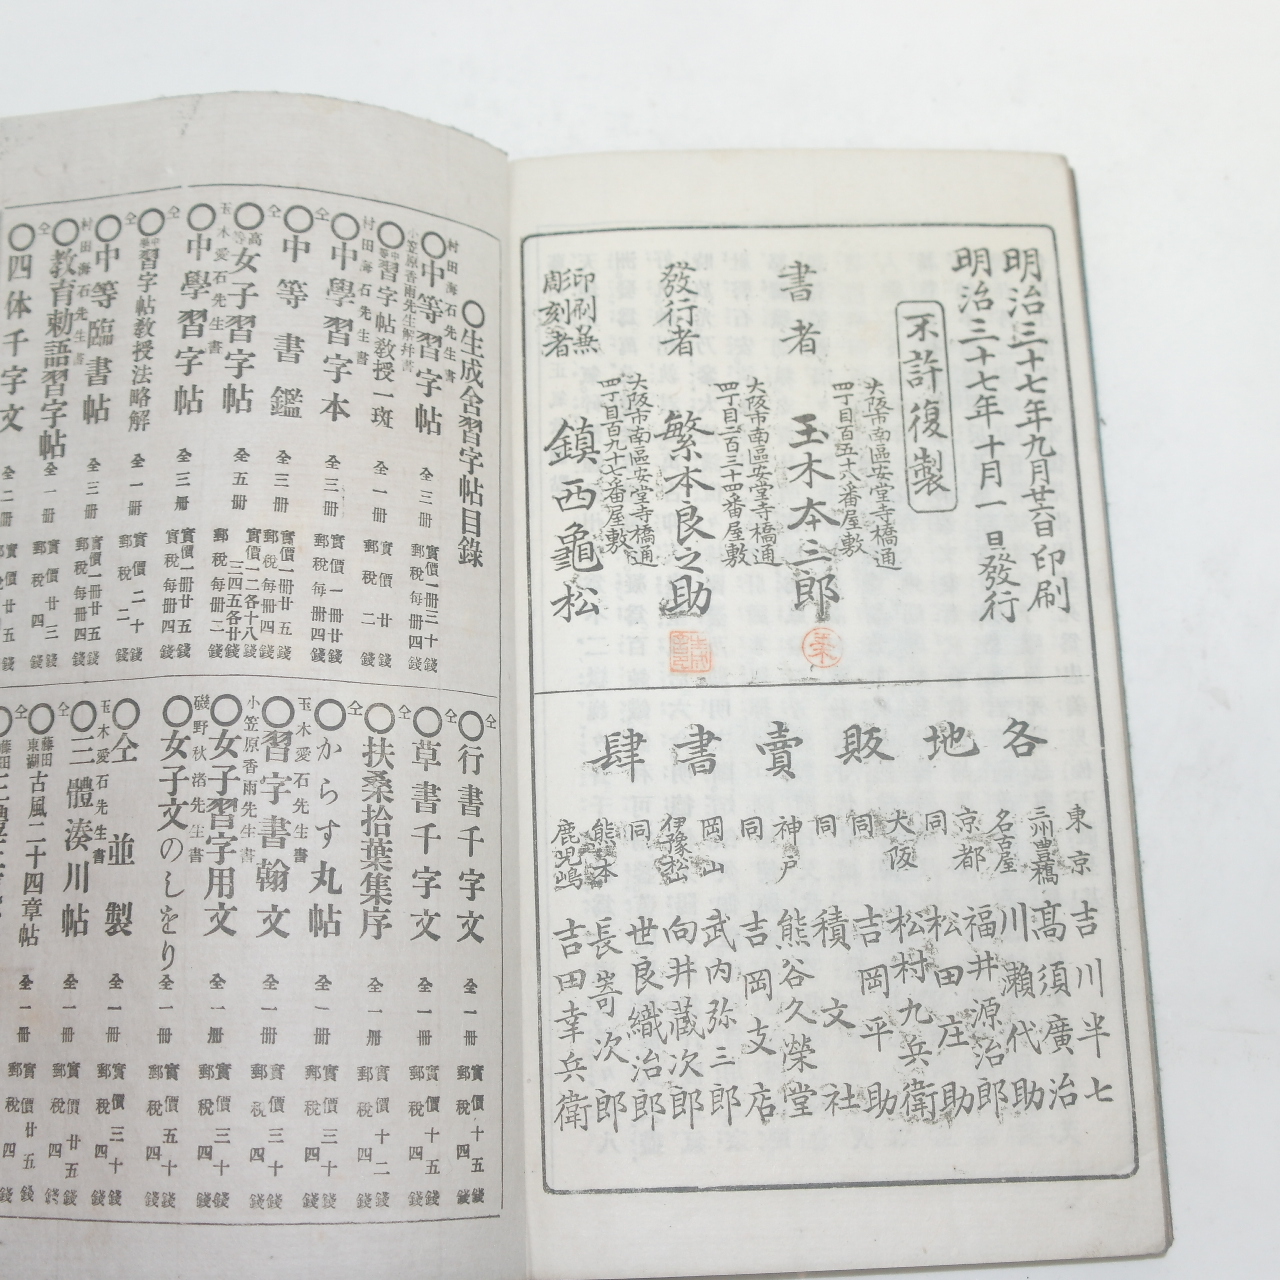 明治三十七年九月廿六日印刷
明治三十七年十月一日發行
不許復製
大阪市南區安堂寺橋通
四丁目百五十八番屋敷
書者 玉木本三郎
大阪市南區安堂寺橋通
四丁目二百三十四番屋敷
發行者 繁本良之助
大阪市南區安堂寺橋通
四丁目百九十七番屋敷
印刷兼
彫刻者 鎮西龜松
各地販賣書肆
東京 吉川半七
三州豊橋 高須廣治
名古屋 川瀬代助
京都 福井源治郎
同 松田庄助
大阪 松村九兵衛
同 吉岡平助
同 積文社
神戸 熊谷久榮堂
同 吉岡支店
岡山 武内弥三郎
伊豫松山 向井蔵次郎
同 世良織治郎
熊本 長嵜次郎
鹿児嶋 吉田幸兵衛
○生成舍習字帖目錄
村田海石先生書
○中等習字帖 全三冊 實價一冊三十錢 郵稅每冊四錢
小笠原香雨先生解并書
○中等習字帖教授一斑 全一冊 實價廿錢 郵稅二錢
村田海石先生書
○中學習字本 全三冊 實價一冊廿錢 郵稅每冊四錢
仝
○中等書鑑 全三冊 實價一冊廿五錢 郵稅每冊四錢
○高等女子習字帖 全五冊
玉木愛石先生書
○中學習字帖 全三冊 實價一冊廿五錢
仝
○中學習字帖教授法略解 全一冊 實價二十錢 郵稅二錢
仝
○中等臨書帖 全三冊 實價一冊廿五錢 郵稅每冊四錢
村田海石先生書
○教育勅語習字帖 全一冊 實價廿三錢 郵稅四錢
仝
○四体千字文 全二冊
仝
○行書千字文 全一冊 實價十五錢 郵稅四錢
仝
○草書千字文 全一冊 實價十五錢 郵稅四錢
仝
○扶桑拾葉集序 全一冊 實價十二錢 郵稅四錢
仝
○からす丸帖 全一冊 實價三十錢 郵稅四錢
玉木愛石先生書
○習字書翰文 全一冊 實價三十錢 郵稅四錢
小笠原香雨先生書
○女子習字用文 全一冊 實價三十錢 郵稅四錢
磯野秋渚先生書
○女子文のしをり 全一冊 實價五十錢 郵稅四錢
○仝 並製 全一冊 實價三十錢 郵稅四錢
玉木愛石先生書
○三體湊川帖 全一冊 實價廿五錢 郵稅四錢
仝
○藤田東湖古風二十四章帖 全一冊 實價廿五錢 郵稅四錢